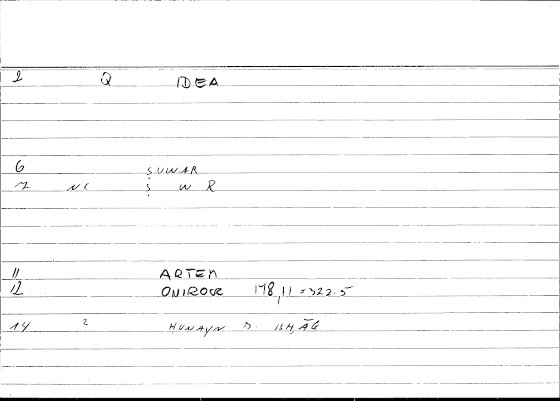 1 Q IDEA
6 ṢUWAR
7 NC Ṣ W R
11 ARTEM
12 ONIROCR 178,11 = 322.5
14 2 ḤUNAYN B. ISḤĀQ